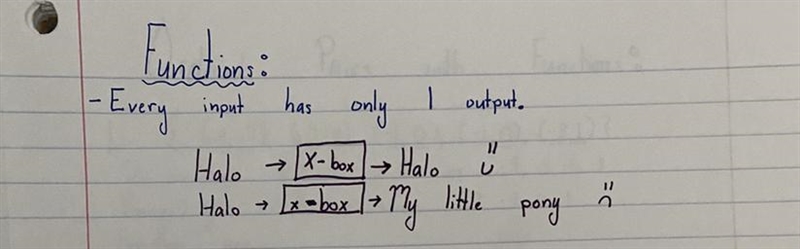 Functions:
- Every input has only 1 output.
Halo → X-box → Halo
Halo → x-box → My little pony